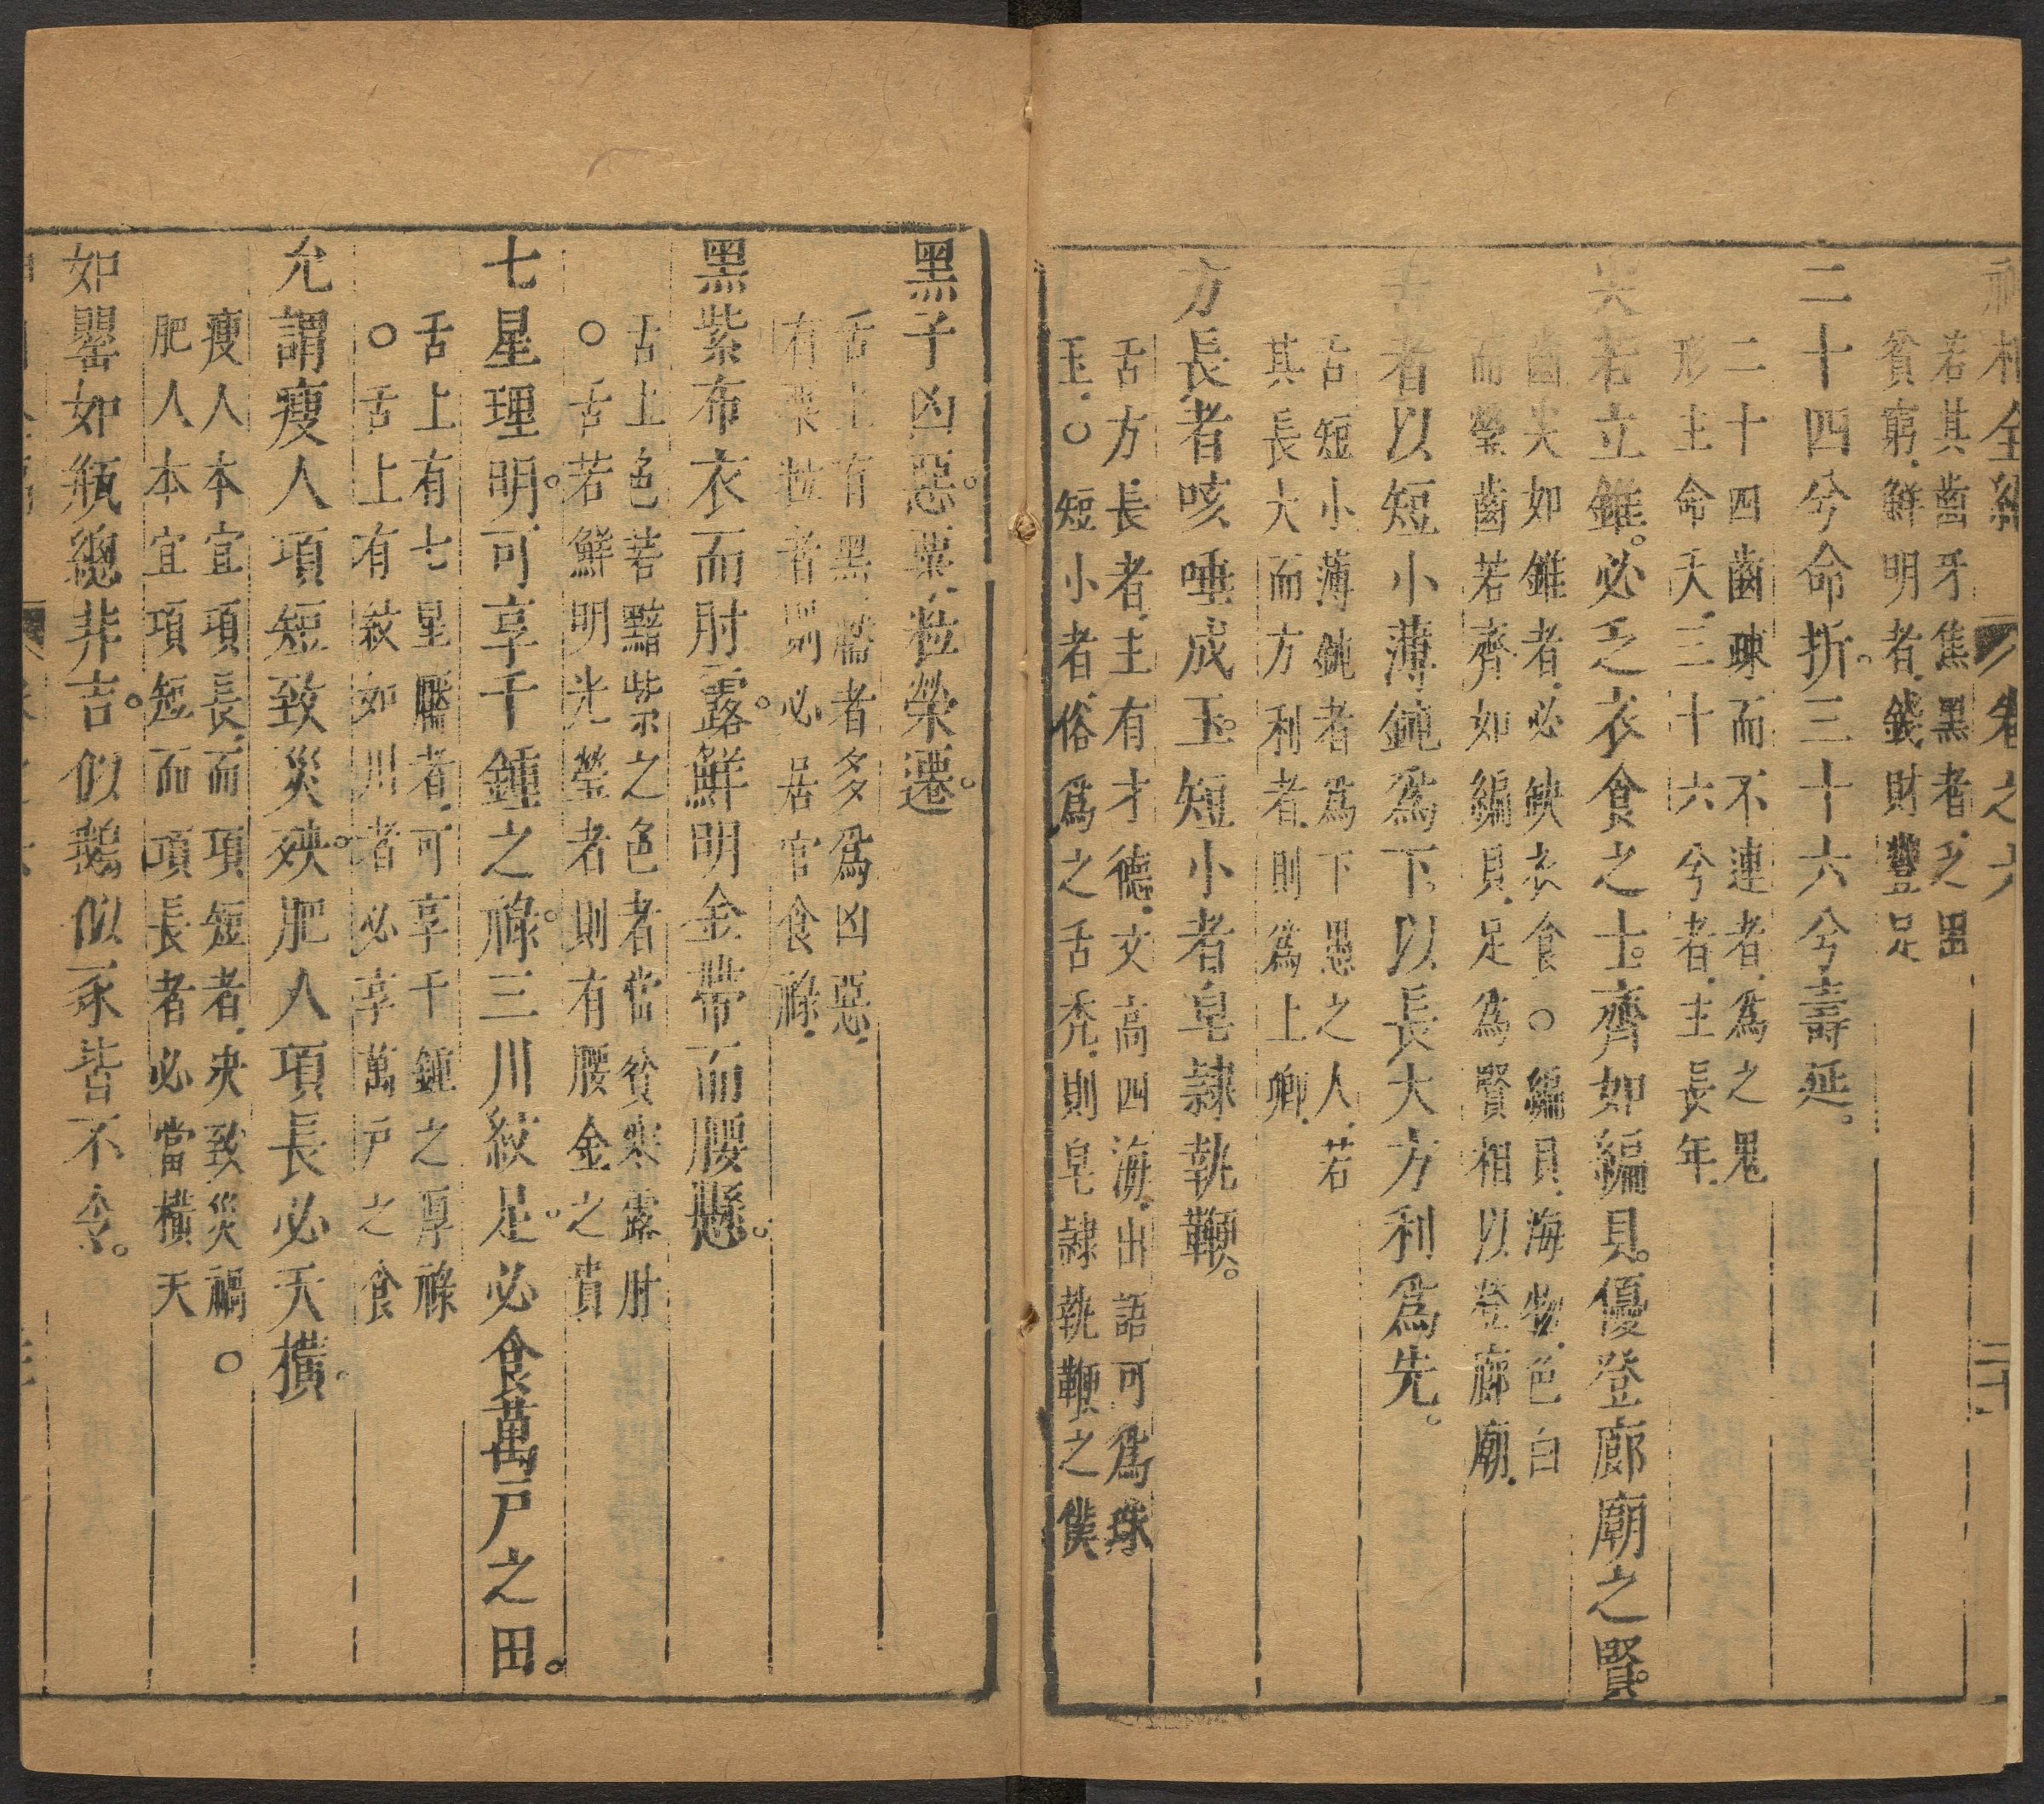 神相全編 卷之六 二十
若其齒牙焦黑者乏困
貧窮鮮明者錢財豐足
二十四兮命折三十六兮壽延
二十四齒疎而不連者為之鬼
形主命夭三十六兮者主長年
尖若立錐必乏衣食之士齊如編貝優登廊廟之賢
齒尖如錐者必缺衣食○編貝海物色白
而瑩齒若齊如編貝足為賢相以登廊廟
舌者以短小薄鈍爲下以長大方利爲先
舌短小薄鈍者為下愚之人若
其長大而方利者則為上卿
方長者咳唾成玉短小者皂隸執鞭
舌方長者主有才德文高四海出語可爲珠
玉○短小者俗爲之舌禿則皂隸執鞭之僕
黑子凶惡粟粒榮遷
舌上有黑黶者多爲凶惡
有粟粒者則必居官食祿
黑紫布衣而肘露鮮明金帶而腰懸
舌上色若黯紫之色者當貧寒露肘
○舌若鮮明光瑩者則有腰金之貴
七星理明可享千鍾之祿三川紋足必食萬戸之田
舌上有七星黶者可享千鍾之厚祿
○舌上有紋如川者必享萬戸之食
允謂瘦人項短致災殃肥人項長必夭橫
瘦人本宜項長而項短者決致災禍○
肥人本宜項短而項長者必當橫夭
如罌如瓶總非吉似鵝似豕皆不令